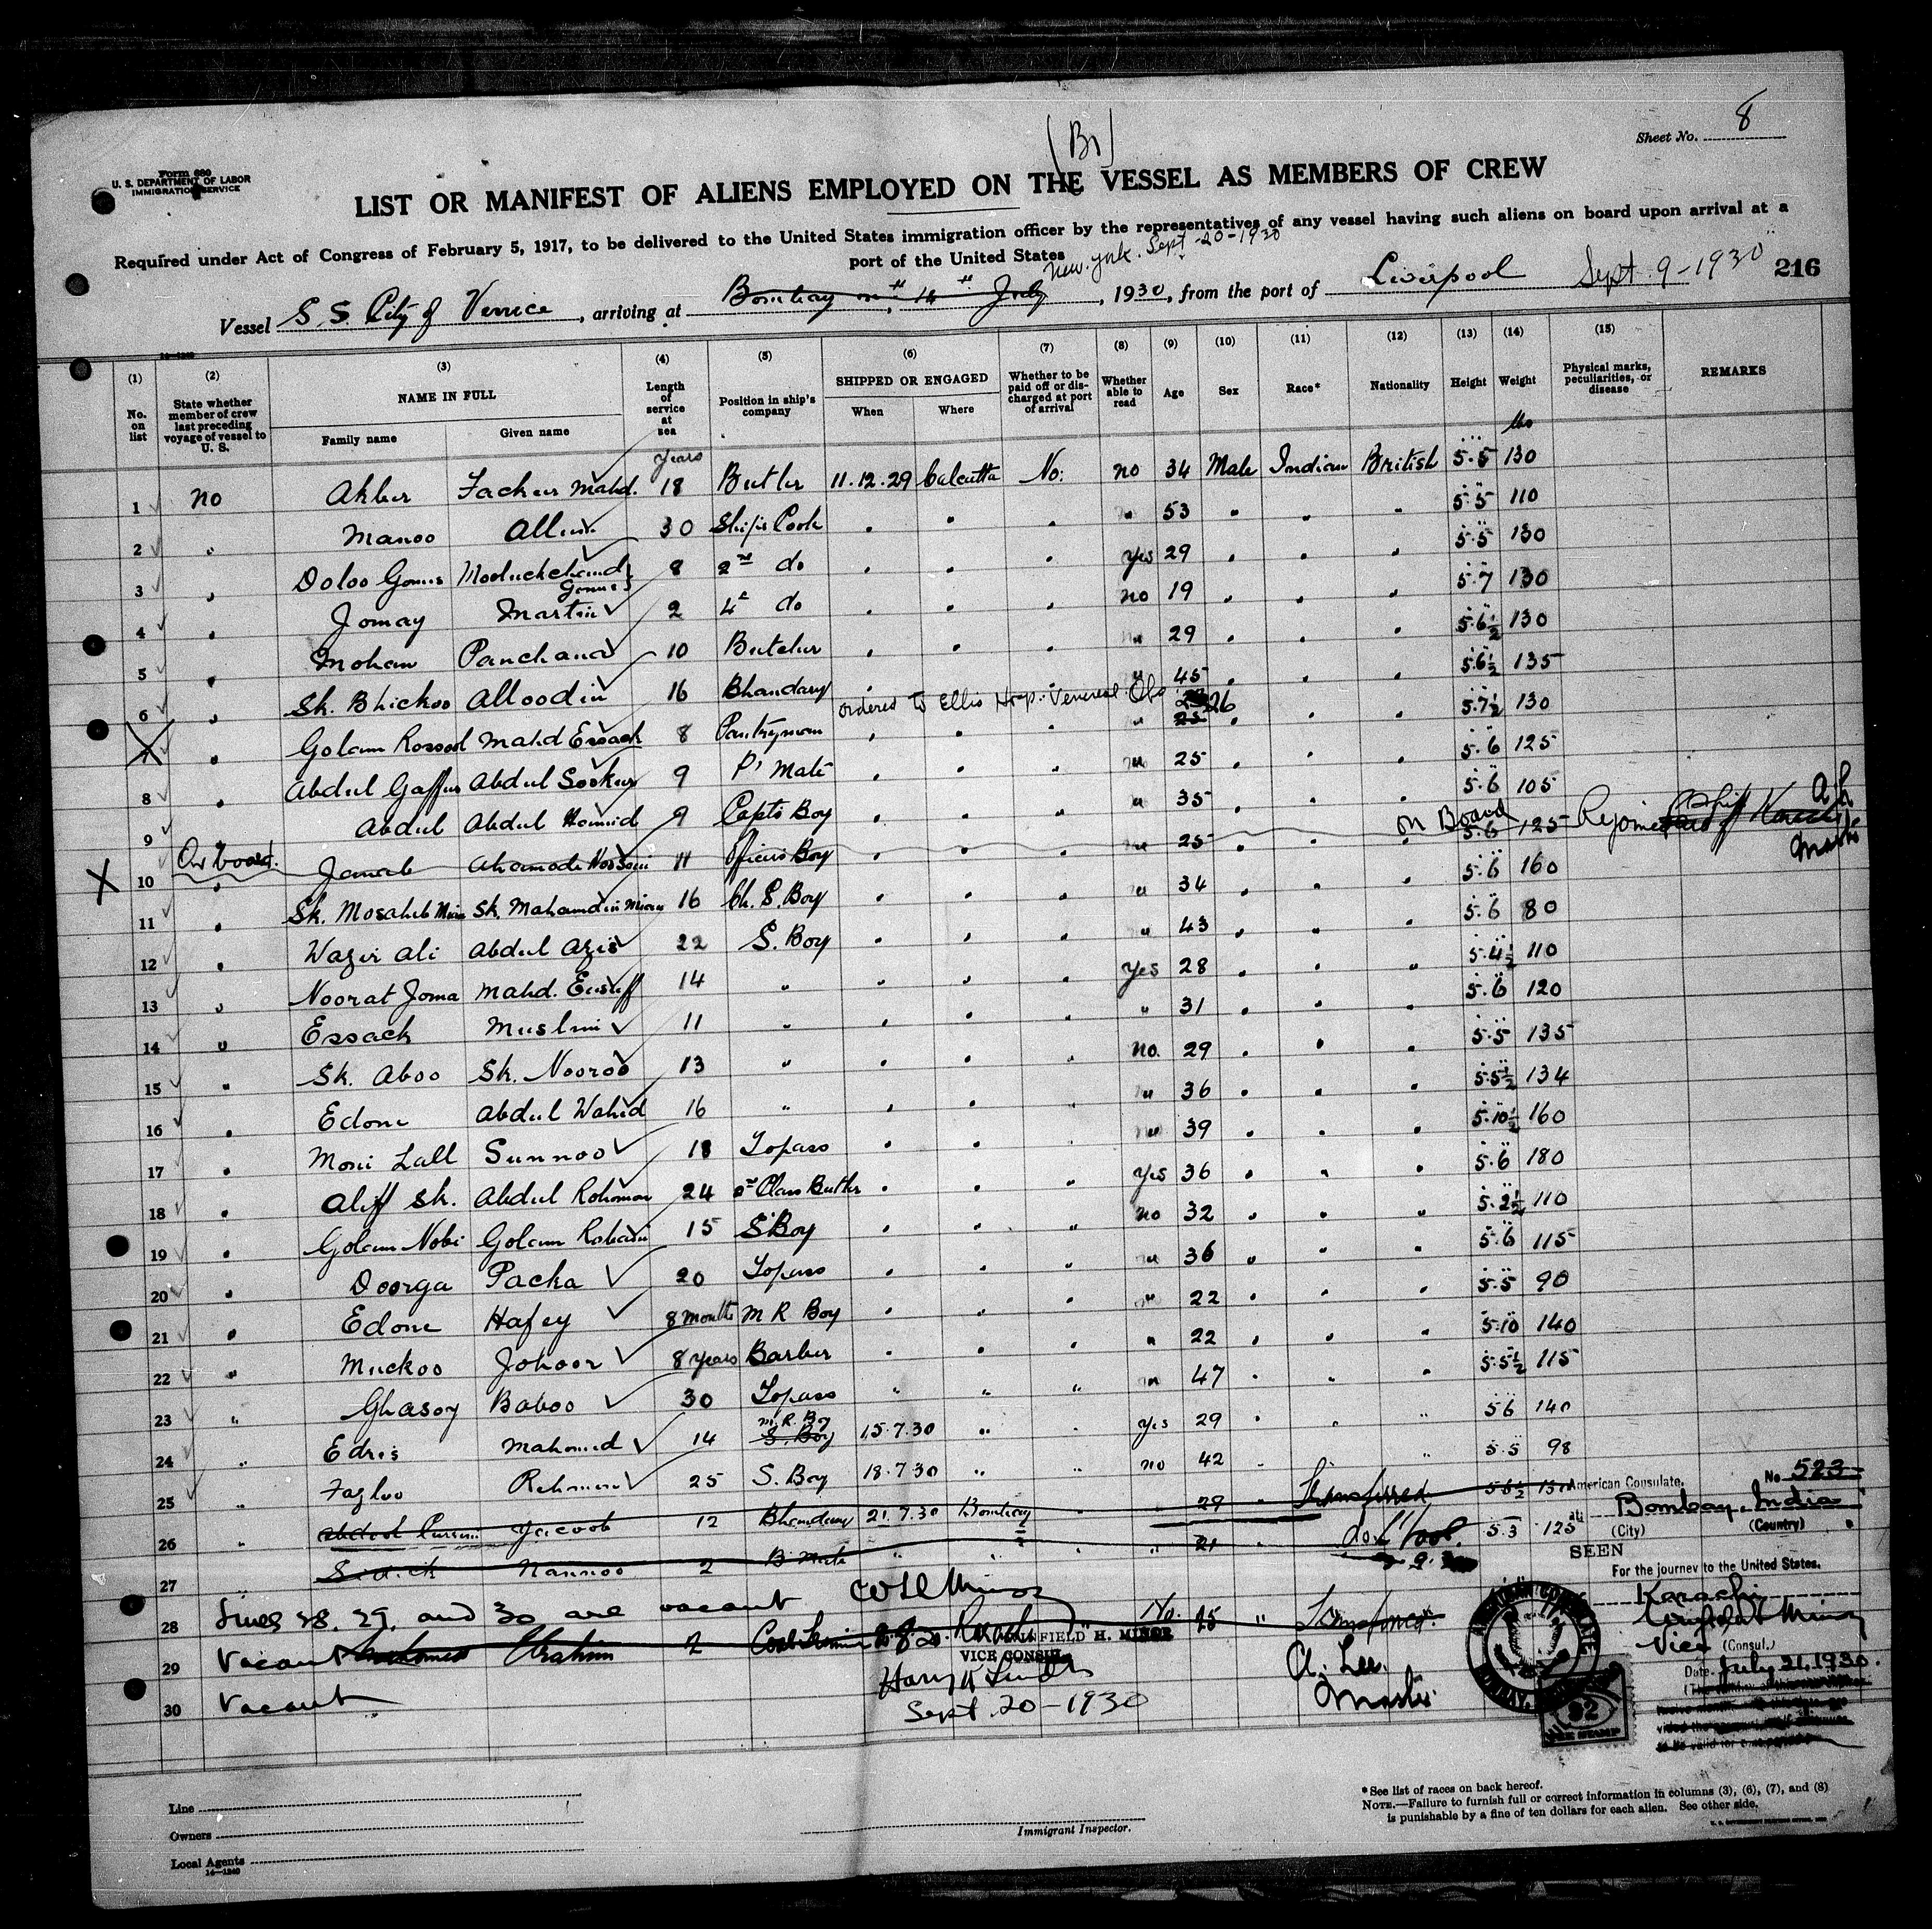 Sheet No. 8
(Br)
Form 680
U. S. DEPARTMENT OF LABOR
IMMIGRATION SERVICE
LIST OR MANIFEST OF ALIENS EMPLOYED ON THE VESSEL AS MEMBERS OF CREW
Required under Act of Congress of February 5, 1917, to be delivered to the United States immigration officer by the representatives of any vessel having such aliens on board upon arrival at a
port of the United States
New York. Sept-20-1930
Vessel S.S. City of Venice, arriving at Bombay on 14 July, 1930, from the port of Liverpool Sept. 9-1930 216
14-1240
(1) (2) (3) (4) (5) (6) (7) (8) (9) (10) (11) (12) (13) (14) (15)
No. on list State whether member of crew last preceding voyage of vessel to U. S. NAME IN FULL Length of service at sea Position in ship's company SHIPPED OR ENGAGED Whether to be paid off or discharged at port of arrival Whether able to read Age Sex Race* Nationality Height Weight Physical marks, peculiarities, or disease REMARKS
Family name Given name When Where
years lbs
1 no Akber Facheer Mahd. 18 Butler 11.12.29 Calcutta No. no 34 Male Indian British 5.5 130
2 " Manoo 30 Ship's Cook " " " " 53 " " " 5.5 110
3 " Doloo Gomes Gomes 8 2nd do " " " yes 29 " " " 5.5 130
4 " Jomay Martin 2 4th do " " " no 19 " " " 5.7 130
5 " Mohan Panchana 10 Butcher " " " " 29 " " " 5.6½ 130
6 " Sk. Bhickoo Alloodin 16 Bhandary " " " " 45 " " " 5.6½ 135
ordered to Ellis Hosp. Venereal Obs
7 " Golam Rosool Mahd Essack 8 Pantryman " " " " 26 " " " 5.7½ 130
8 " Abdul Gaffur Abdul Sookur 9 P' Mate " " " " 25 " " " 5.6 125
9 " Abdul Abdul Hamid 9 Capts Boy " " " " 35 " " " 5.6 105
10 On board. Janab Ahamode Hossein 11 Officers Boy " " " " 25 " " On Board 5.6 125 Rejoined Master
11 " Sk. Mosaheb Mian Sk. Mahamdin Mian 16 Ch. S. Boy " " " " 34 " " " 5.6 160
12 " Wazir Ali Abdul Azis 22 S. Boy " " " " 43 " " " 5.6 80
13 " Noorat Joma Mahd. Eusuff 14 " " " " yes 28 " " " 5.4½ 110
14 " Essack Muslim 11 " " " " " 31 " " " 5.6 120
15 " Sk. Aboo Sk. Nooroo 13 " " " " no. 29 " " " 5.5 135
16 " Edone Abdul Wahid 16 " " " " " 36 " " " 5.5½ 134
17 " Moni Lall Sunnoo 18 Topass " " " " 39 " " " 5.10½ 160
18 " Aliff Sk. Abdul Rohoman 24 2nd Class Butler " " " yes 36 " " " 5.6 180
19 " Golam Nobi Golam Robani 15 S. Boy " " " no 32 " " " 5.2½ 110
20 " Doorga Packa 20 Topass " " " " 36 " " " 5.6 115
21 " Edone Hafey 8 months M R Boy " " " " 22 " " " 5.5 90
22 " Muckoo Johoor 8 years Barber " " " " 22 " " " 5.10 140
23 " Ghasoy Baboo 30 Topass " " " " 47 " " " 5.5½ 115
24 " Edris Mahomed 14 S. Boy M. R. Boy 15.7.30 " " yes 29 " " " 5.6 140
25 " Fazloo Rehman 25 S. Boy 18.7.30 " " no 42 " " 5.5 98
26 " Yacoob 12 Bhandary 21.7.30 Bombay " " 29 " Transferred 5.6½ 130
27 " Sidick Nannoo 2 B. Mate " " " " 21 " do L'pool. 5.3 125
28 Lines 28. 29. and 30 are vacant
29 Vacant Mahomed Ebrahim 2 No. 25 " Transferred
30 Vacant
WINFIELD H. MINOR
VICE CONSUL
Sept. 20-1930
A. Lee.
Master.
No 523
American Consulate,
at Bombay, India
(City) (Country)
SEEN
For the journey to the United States.
Karachi
Winfield H Minor
Vice (Consul.)
Date July 21, 1930.
AMERICAN CONSULATE
$2
FEE STAMP
Line
Owners
Local Agents
14-1240
Immigrant Inspector.
*See list of races on back hereof.
NOTE.—Failure to furnish full or correct information in columns (3), (6), (7), and (8)
is punishable by a fine of ten dollars for each alien. See other side.